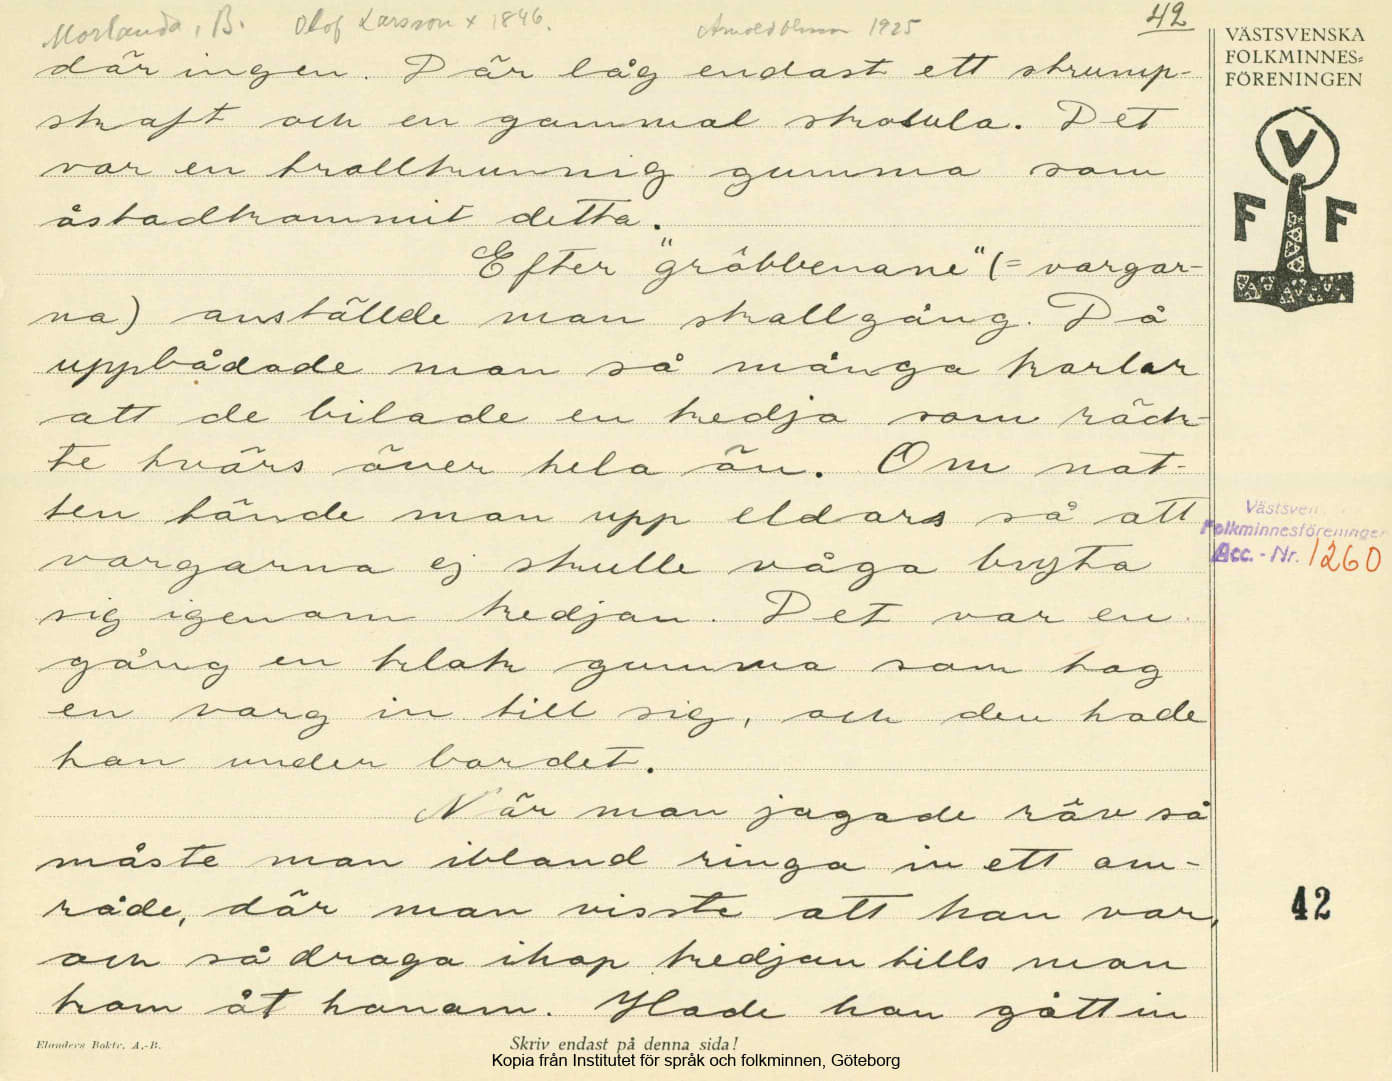 Morlanda, B. Olof Larsson x 1846. Arnold Olsson 1925 42
VÄSTSVENSKA
FOLKMINNES=
FÖRENINGEN
V
F F
där ingen. Där låg endast ett strump-
skaft och en gammal skosula. Det
var en trollkunnig gumma som
åstadkommit detta.
Efter "gråbbenane" (= vargar-
na) anställde man skallgång. Då
uppbådade man så många karlar
att de bilade en kedja som räck-
te tvärs över hela ön. Om nat-
ten tände man upp eldars så att
vargarna ej skulle våga bryta
sig igenom kedjan. Det var en
gång en klok gumma som tog
en varg in till sig, och den hade
han under bordet.
När man jagade räv så
måste man ibland ringa in ett om-
råde, där man visste att han var,
och så draga ihop kedjan tills man
kom åt honom. Hade han gått in
Västsven
Folkminnesföreningen
Acc. - Nr. 1260
42
Elanders Boktr. A.-B.
Skriv endast på denna sida!
Kopia från Institutet för språk och folkminnen, Göteborg